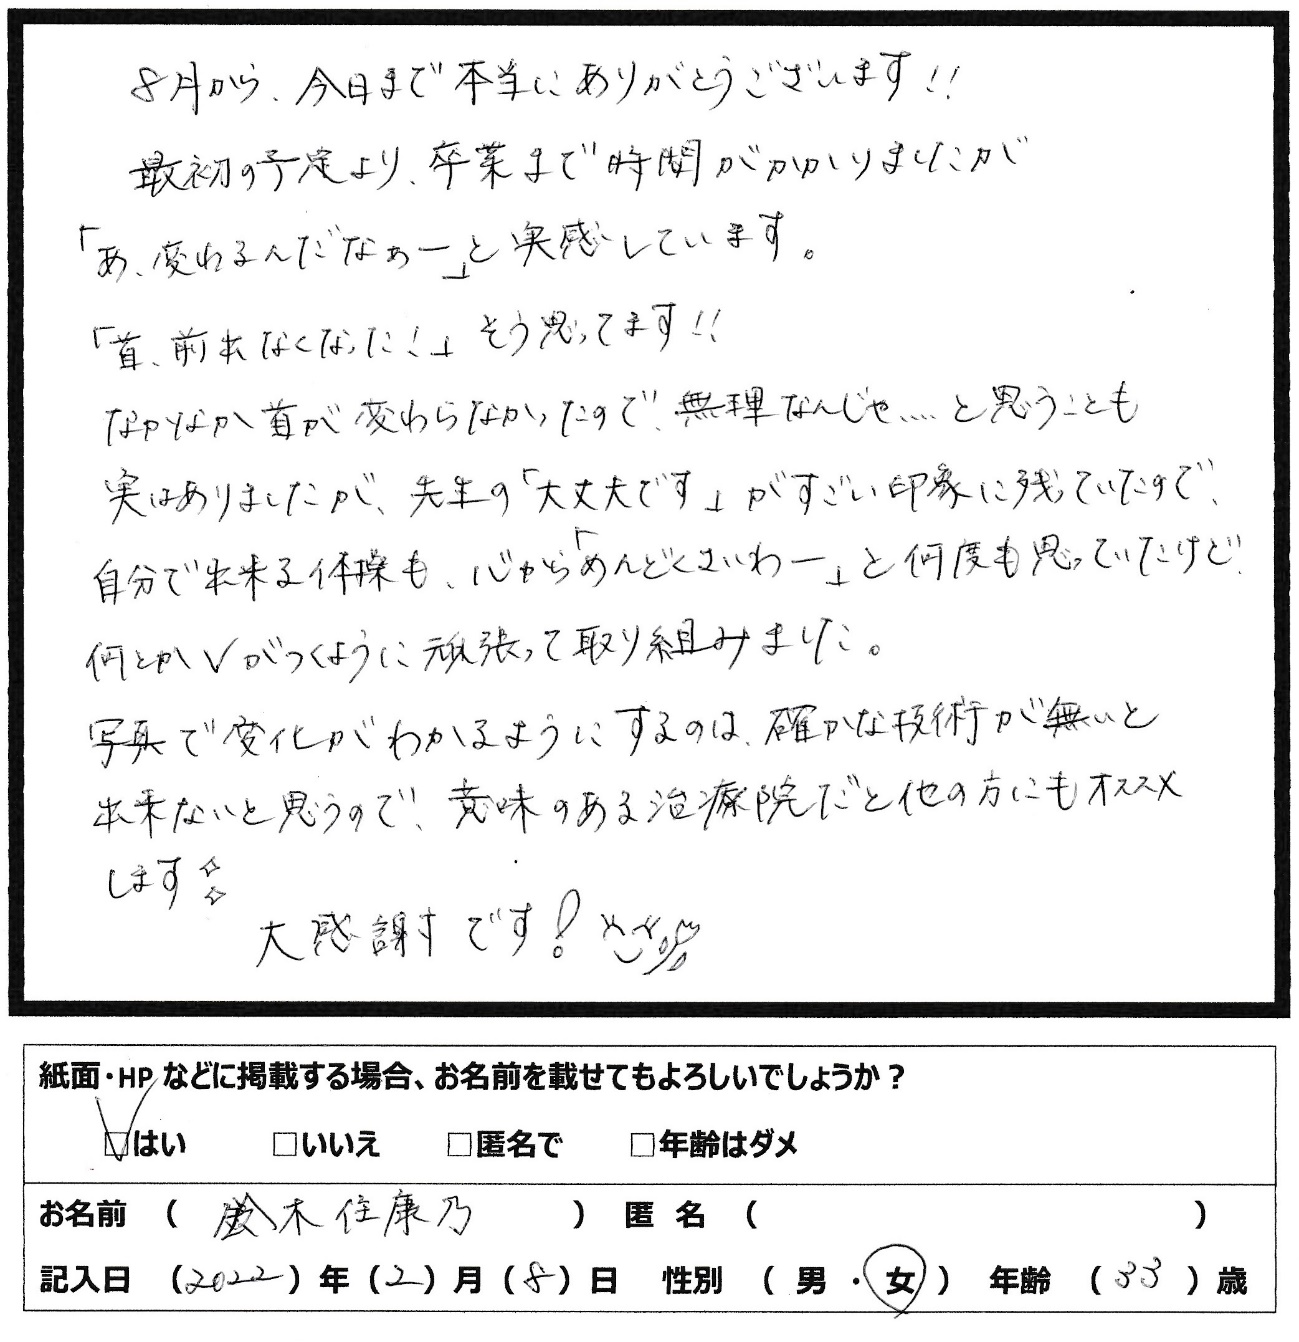 8月から、今日まで本当にありがとうございます!!
最初の予定より、卒業まで時間がかかりましたが
「あ、変わるんだなぁー」と実感しています。
「首、前出なくなった!」そう思ってます!!
なかなか首が変わらなかったので、無理なんじゃ....と思うことも
実はありましたが、先生の「大丈夫です」がすごい印象に残っていたので、
自分で出来る体操も、心から「めんどくさいわー」と何度も思っていたけど、
何とか✓がつくように頑張って取り組みました。
写真で変化がわかるようにするのは、確かな技術が無いと
出来ないと思うので、意味のある治療院だと他の方にもオススメ
します
大感謝です!
紙面・HPなどに掲載する場合、お名前を載せてもよろしいでしょうか?
☑はい □いいえ □匿名で □年齢はダメ
お名前 ( 鈴木佳康乃 ) 匿 名 ( )
記入日 (2022) 年 (2) 月 (8) 日 性別 ( 男 ・ 女 ) 年齢 (33) 歳